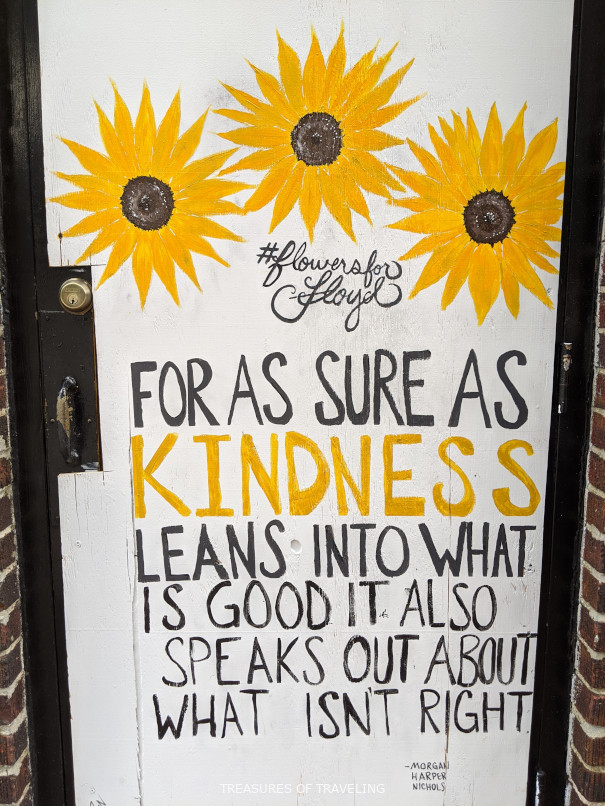 #flowersfor
Floyd
FOR AS SURE AS
KINDNESS
LEANS INTO WHAT
IS GOOD IT ALSO
SPEAKS OUT ABOUT
WHAT ISN'T RIGHT.
-MORGAN
HARPER
NICHOLS
TREASURES OF TRAVELING